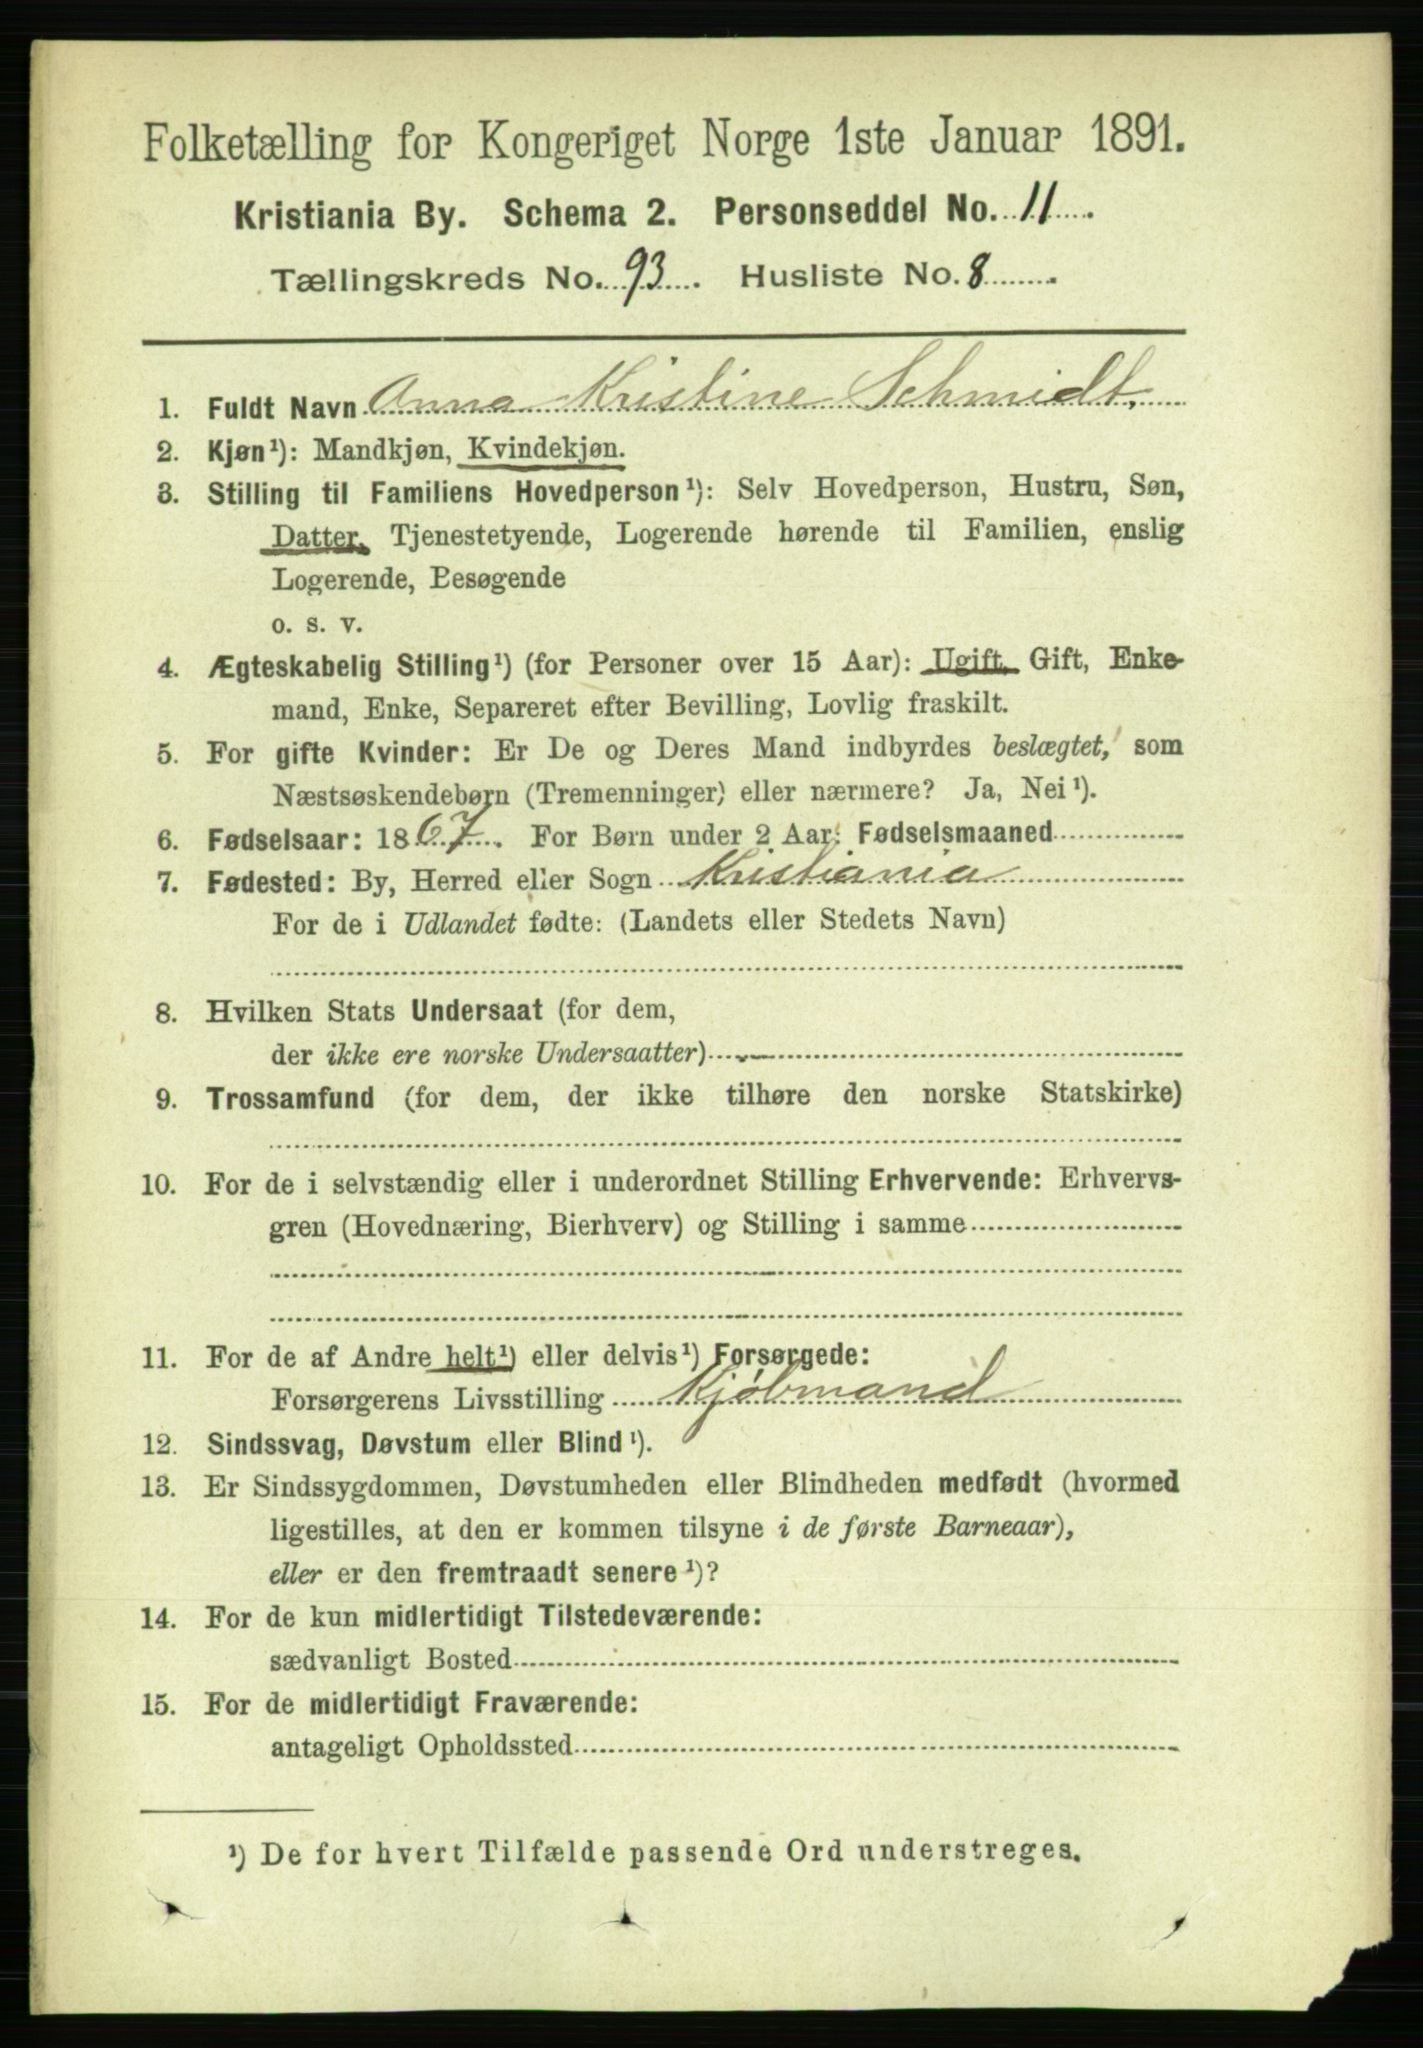 Folketælling for Kongeriget Norge 1ste Januar 1891.
Kristiania By. Schema 2. Personseddel No. 11
Tællingskreds No. 93. Husliste No. 8
1. Fuldt Navn Anna Kristine Schmidt.
2. Kjøn¹): Mandkjøn, Kvindekjøn.
3. Stilling til Familiens Hovedperson¹): Selv Hovedperson, Hustru, Søn,
Datter, Tjenestetyende, Logerende hørende til Familien, enslig
Logerende, Besøgende
o. s. v.
4. Ægteskabelig Stilling¹) (for Personer over 15 Aar): Ugift, Gift, Enke-
mand, Enke, Separeret efter Bevilling, Lovlig fraskilt.
5. For gifte Kvinder: Er De og Deres Mand indbyrdes beslægtet, som
Næstsøskendebørn (Tremenninger) eller nærmere? Ja, Nei¹).
6. Fødselsaar: 1867. For Børn under 2 Aar: Fødselsmaaned
7. Fødested: By, Herred eller Sogn Kristiania
For de i Udlandet fødte: (Landets eller Stedets Navn)
8. Hvilken Stats Undersaat (for dem,
der ikke ere norske Undersaatter)
9. Trossamfund (for dem, der ikke tilhøre den norske Statskirke)
10. For de i selvstændig eller i underordnet Stilling Erhvervende: Erhvervs-
gren (Hovednæring, Bierhverv) og Stilling i samme
11. For de af Andre helt¹) eller delvis¹) Forsørgede:
Forsørgerens Livsstilling Kjøbmand
12. Sindssvag, Døvstum eller Blind¹).
13. Er Sindssygdommen, Døvstumheden eller Blindheden medfødt (hvormed
ligestilles, at den er kommen tilsyne i de første Barneaar),
eller er den fremtraadt senere¹)?
14. For de kun midlertidigt Tilstedeværende:
sædvanligt Bosted
15. For de midlertidigt Fraværende:
antageligt Opholdssted
¹) De for hvert Tilfælde passende Ord understreges.